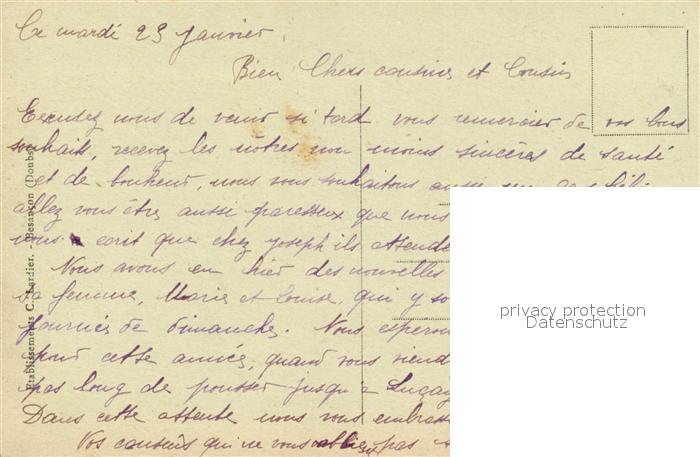 Ce mardi 23 Janvier.
Bien Chers cousines et Cousin
Excusez nous de venir si tard vous remercier de vos bons
souhaits, recevez les nôtres non moins sincères de santé
et de bonheur, nous vous souhaitons aussi un
allez vous être aussi paresseux que nous
vous écrit que chez Joseph ils attende
Nous avons eu hier des nouvelles
sa femme, Marie et Louise, qui y so
journée de dimanche. Nous esperon
pour cette année, quand vous viend
pas long de pousser jusqu'à
Dans cette attente nous vous embrass
Vos cousins qui ne vous oublient pas
Etablissements C. Lardier. - Besançon (Doubs)
privacy protection
Datenschutz